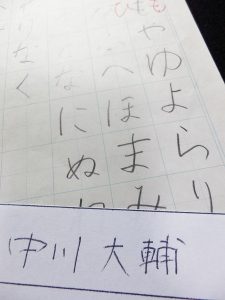 もやゆよらり
ひふへほまみ
なにぬ
りなく
中川 大輔